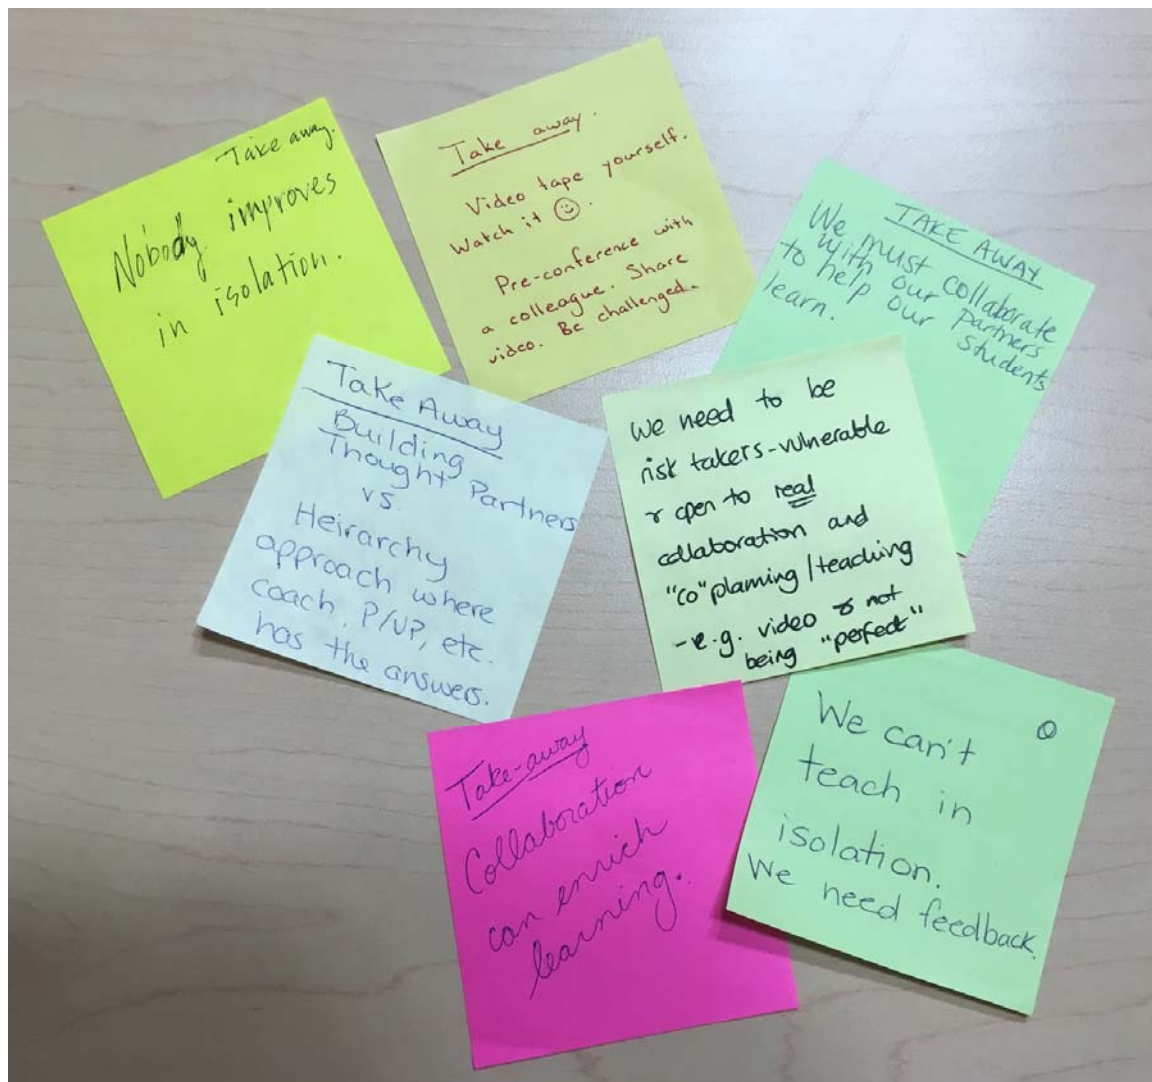 Take away.
Nobody improves
in isolation.
Take away.
Video tape yourself.
Watch it ☺.
Pre-conference with
a colleague. Share
video. Be challenged.
TAKE AWAY
We must collaborate
with our partners
to help our students
learn.
Take Away
Building
Thought Partners
vs.
Heirarchy
approach where
coach, P/VP, etc.
has the answers.
We need to be
risk takers-vulnerable
& open to real
collaboration and
"co"planning/teaching
-e.g. video & not
being "perfect"
Take-away
Collaboration
can enrich
learning.
We can't
teach in
isolation.
We need feedback.